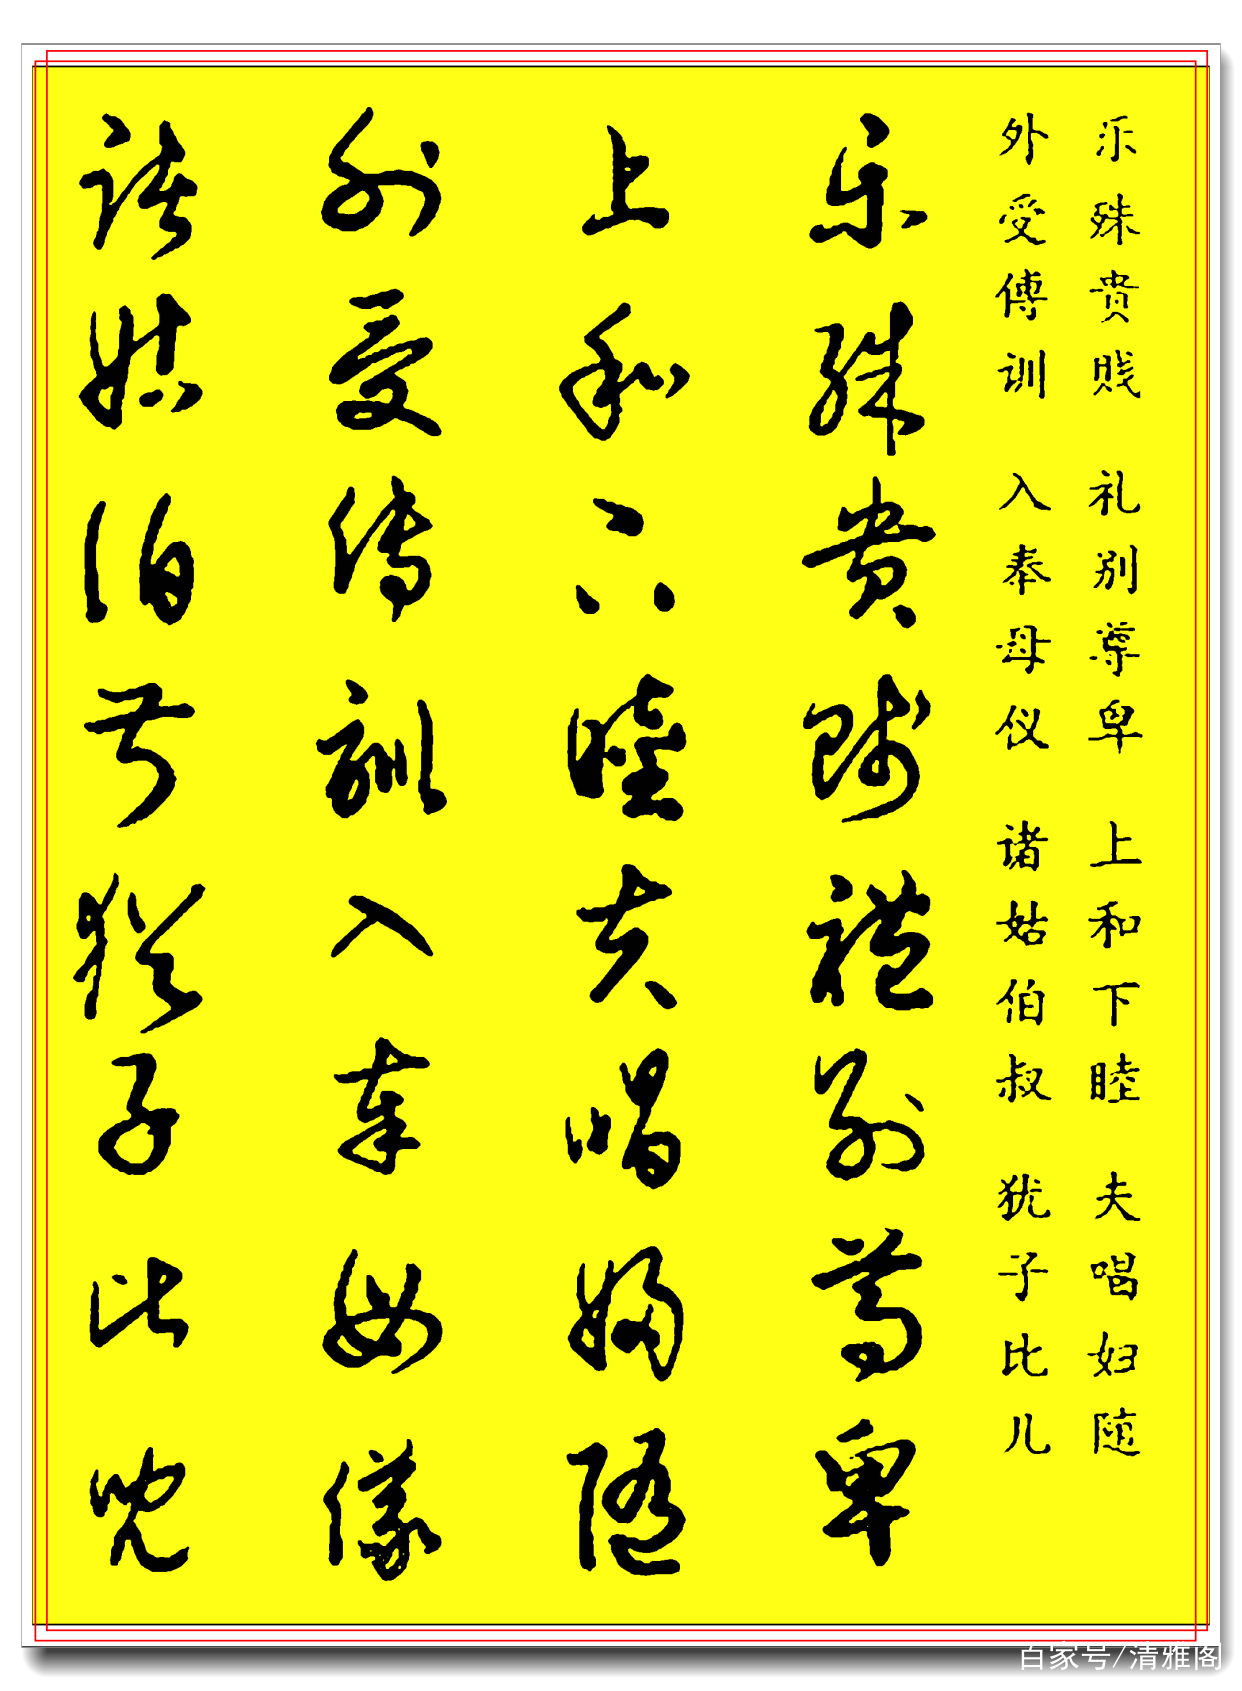 乐殊贵贱 礼别尊卑 上和下睦 夫唱妇随
外受傅训 入奉母仪 诸姑伯叔 犹子比儿
乐殊贵贱禮别尊卑
上和下睦夫唱婦随
外受傅訓入奉母儀
诸姑伯叔犹子比兒
百家号/清雅阁